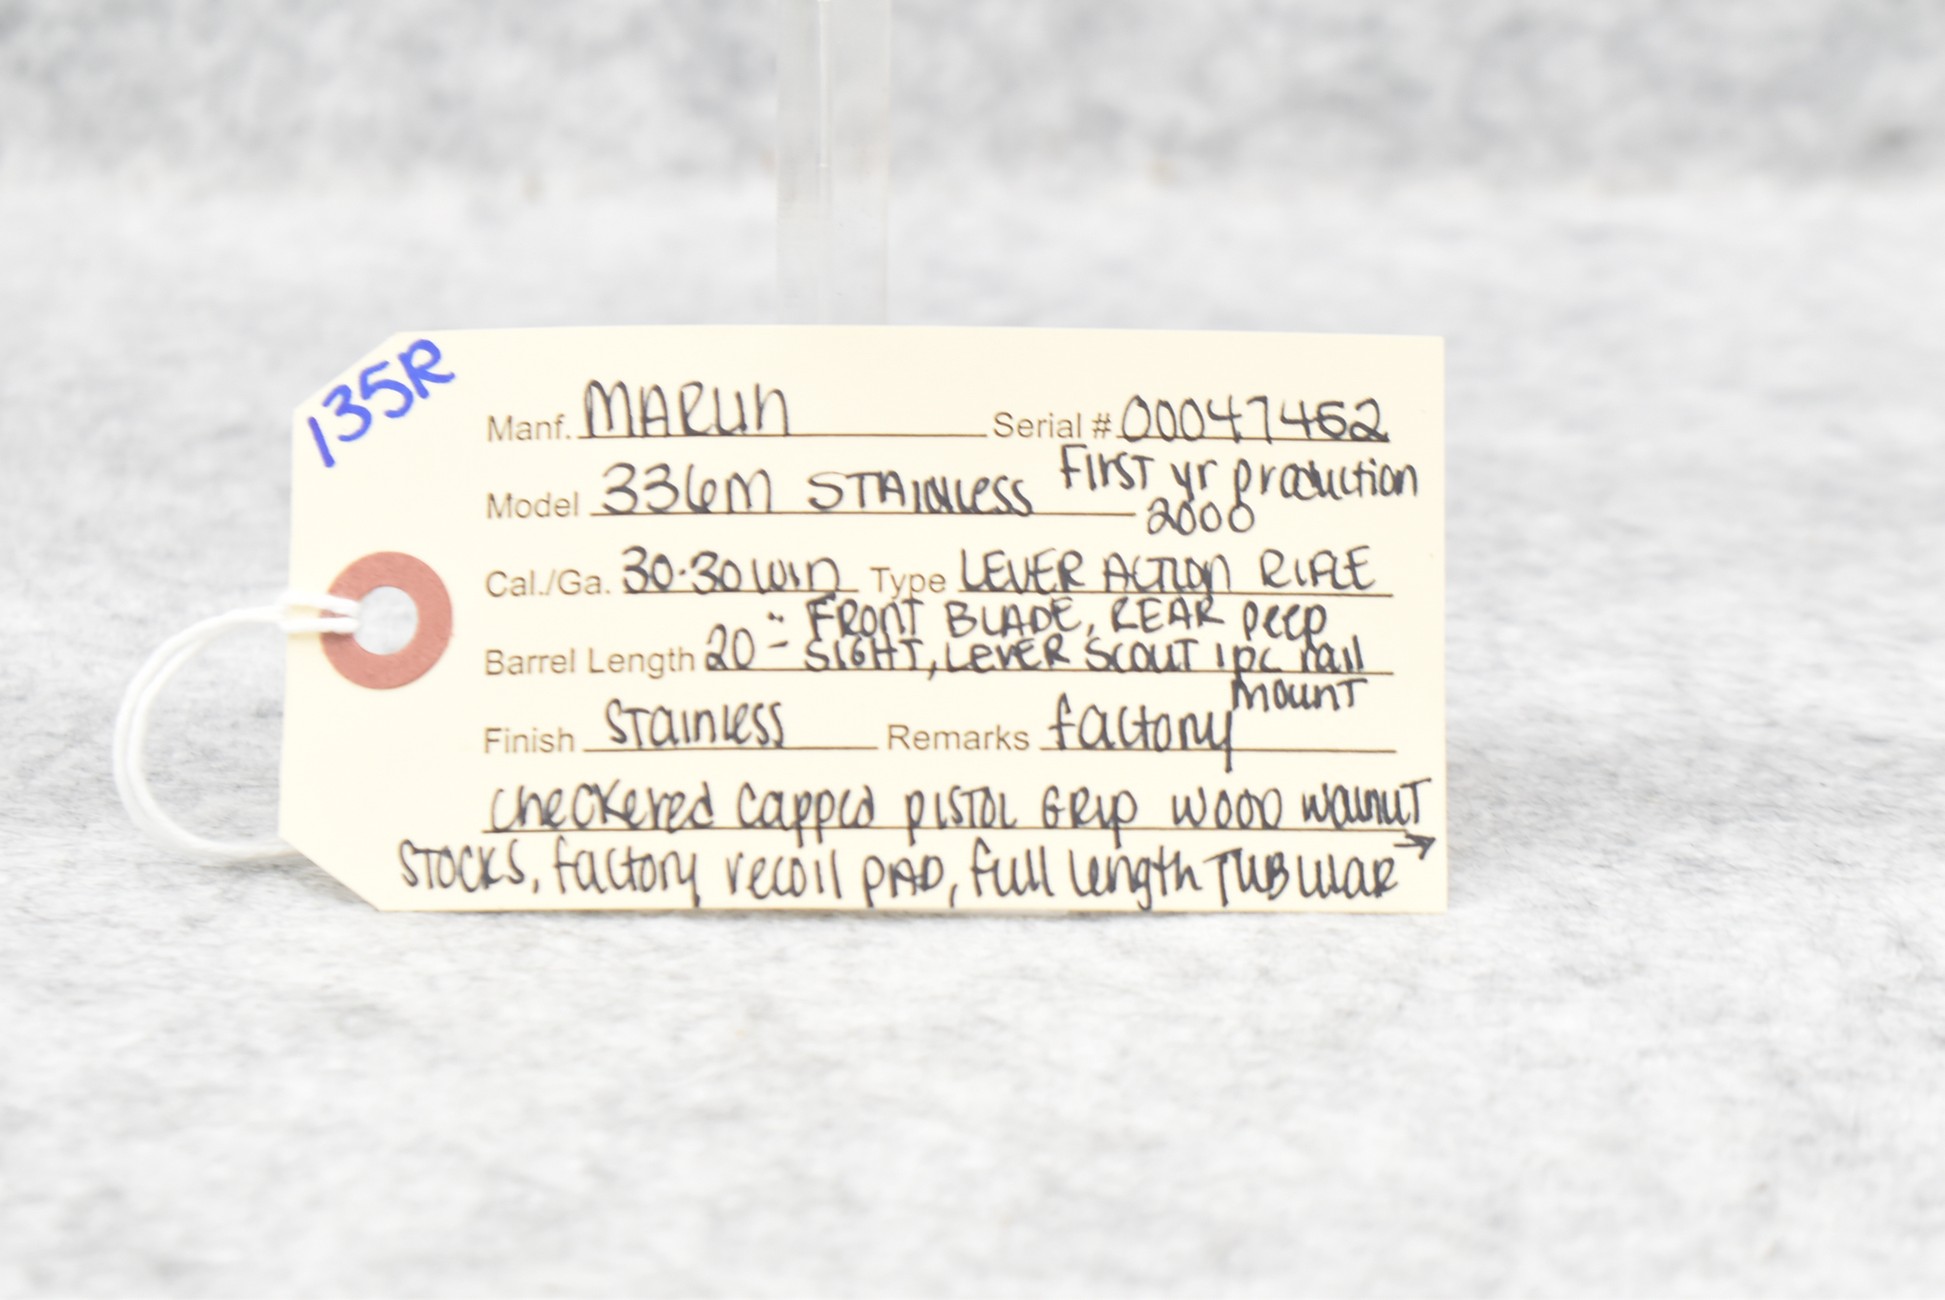 135R
Manf. MARLIN Serial # 00047462
Model 336M STAINLESS First yr production
2000
Cal./Ga. 30-30 WIN Type LEVER ACTION RIFLE
FRONT BLADE, REAR peep
Barrel Length 20" - SIGHT, LEVER SCOUT 1pc rail
mount
Finish Stainless Remarks factory
checkered capped PISTOL GRIP WOOD walnut
STOCKS, factory recoil PAD, full length TUBULAR →